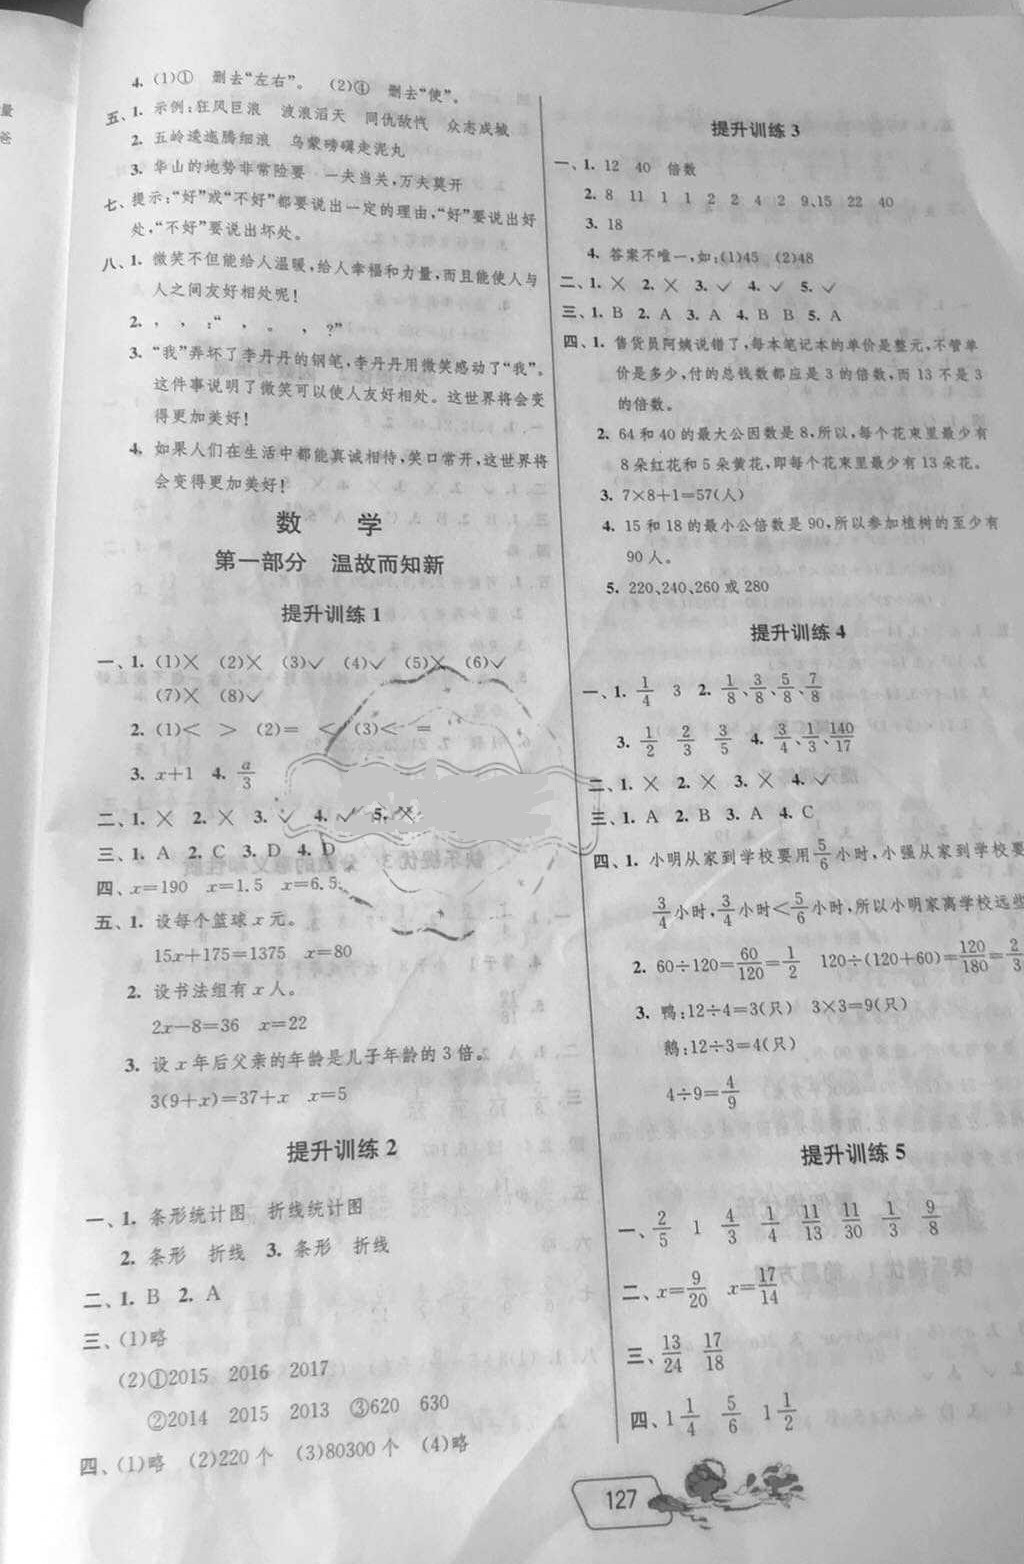 量
爸
4. (1)① 删去“左右”。 (2)④ 删去“使”。
五、1. 示例:狂风巨浪 波浪滔天 同仇敌忾 众志成城
2. 五岭逶迤腾细浪 乌蒙磅礴走泥丸
3. 华山的地势非常险要 一夫当关,万夫莫开
七、提示:“好”或“不好”都要说出一定的理由,“好”要说出好
处,“不好”要说出坏处。
八、1. 微笑不但能给人温暖,给人幸福和力量,而且能使人与
人之间友好相处呢!
2. , , :“ , 。 , ?”
3. “我”弄坏了李丹丹的钢笔,李丹丹用微笑感动了“我”。
这件事说明了微笑可以使人友好相处。这世界将会变
得更加美好!
4. 如果人们在生活中都能真诚相待,笑口常开,这世界将
会变得更加美好!
数 学
第一部分 温故而知新
提升训练1
一、1. (1)× (2)× (3)✓ (4)✓ (5)× (6)✓
(7)× (8)✓
2. (1)< > (2)= < (3)< =
3. x+1 4. a/3
二、1. × 2. × 3. ✓ 4. ✓ 5. ×
三、1. A 2. C 3. D 4. D
四、x=190 x=1.5 x=6.5
五、1. 设每个篮球 x 元。
15x+175=1375 x=80
2. 设书法组有 x 人。
2x−8=36 x=22
3. 设 x 年后父亲的年龄是儿子年龄的3倍。
3(9+x)=37+x x=5
提升训练2
一、1. 条形统计图 折线统计图
2. 条形 折线 3. 条形 折线
二、1. B 2. A
三、(1)略
(2)①2015 2016 2017
②2014 2015 2013 ③620 630
四、(1)略 (2)220个 (3)80300个 (4)略
提升训练3
一、1. 12 40 倍数
2. 8 11 1 1 2 2 4 2 9、15 22 40
3. 18
4. 答案不唯一,如:(1)45 (2)48
二、1. × 2. × 3. ✓ 4. ✓ 5. ✓
三、1. B 2. A 3. A 4. B B 5. A
四、1. 售货员阿姨说错了,每本笔记本的单价是整元,不管单
价是多少,付的总钱数都应是3的倍数,而13不是3
的倍数。
2. 64和40的最大公因数是8,所以,每个花束里最少有
8朵红花和5朵黄花,即每个花束里最少有13朵花。
3. 7×8+1=57(人)
4. 15和18的最小公倍数是90,所以参加植树的至少有
90人。
5. 220、240、260或280
提升训练4
一、1. 1/4 3 2. 1/8、3/8、5/8、7/8
3. 1/2 2/3 3/5 4. 3/4、1/3、140/17
二、1. × 2. × 3. × 4. ✓
三、1. A 2. B 3. A 4. C
四、1. 小明从家到学校要用5/6小时,小强从家到学校要
3/4小时,3/4小时<5/6小时,所以小明家离学校远些
2. 60÷120=60/120=1/2 120÷(120+60)=120/180=2/3
3. 鸭:12÷4=3(只) 3×3=9(只)
鹅:12÷3=4(只)
4÷9=4/9
提升训练5
一、2/5 1 4/3 1/4 11/13 11/30 1/3 9/8
二、x=9/20 x=17/14
三、13/24 17/18
四、1 1/4 5/6 1 1/2
127